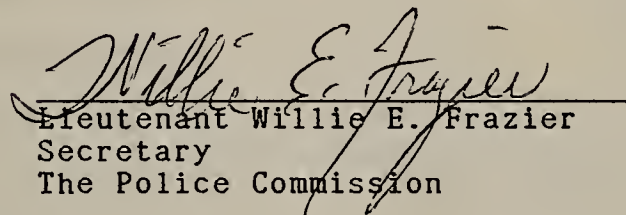 Willie E. Frazier
Lieutenant Willie E. Frazier
Secretary
The Police Commission